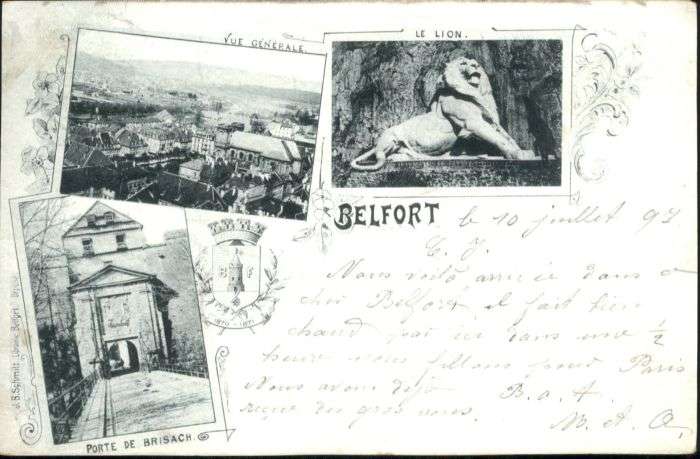 VUE GÉNÉRALE.
LE LION.
BELFORT
le 10 juillet 97
Nous voilà arrivée dans ce
cher Belfort, il fait bien
chaud par ici dans une 1/2
heure nous fillons pour Paris
Nous avons déjà
B. à A.
reçue des gros
M. A. Q.
B F
1870-1871
PORTE DE BRISACH.
J. B. Schmitt Belfort